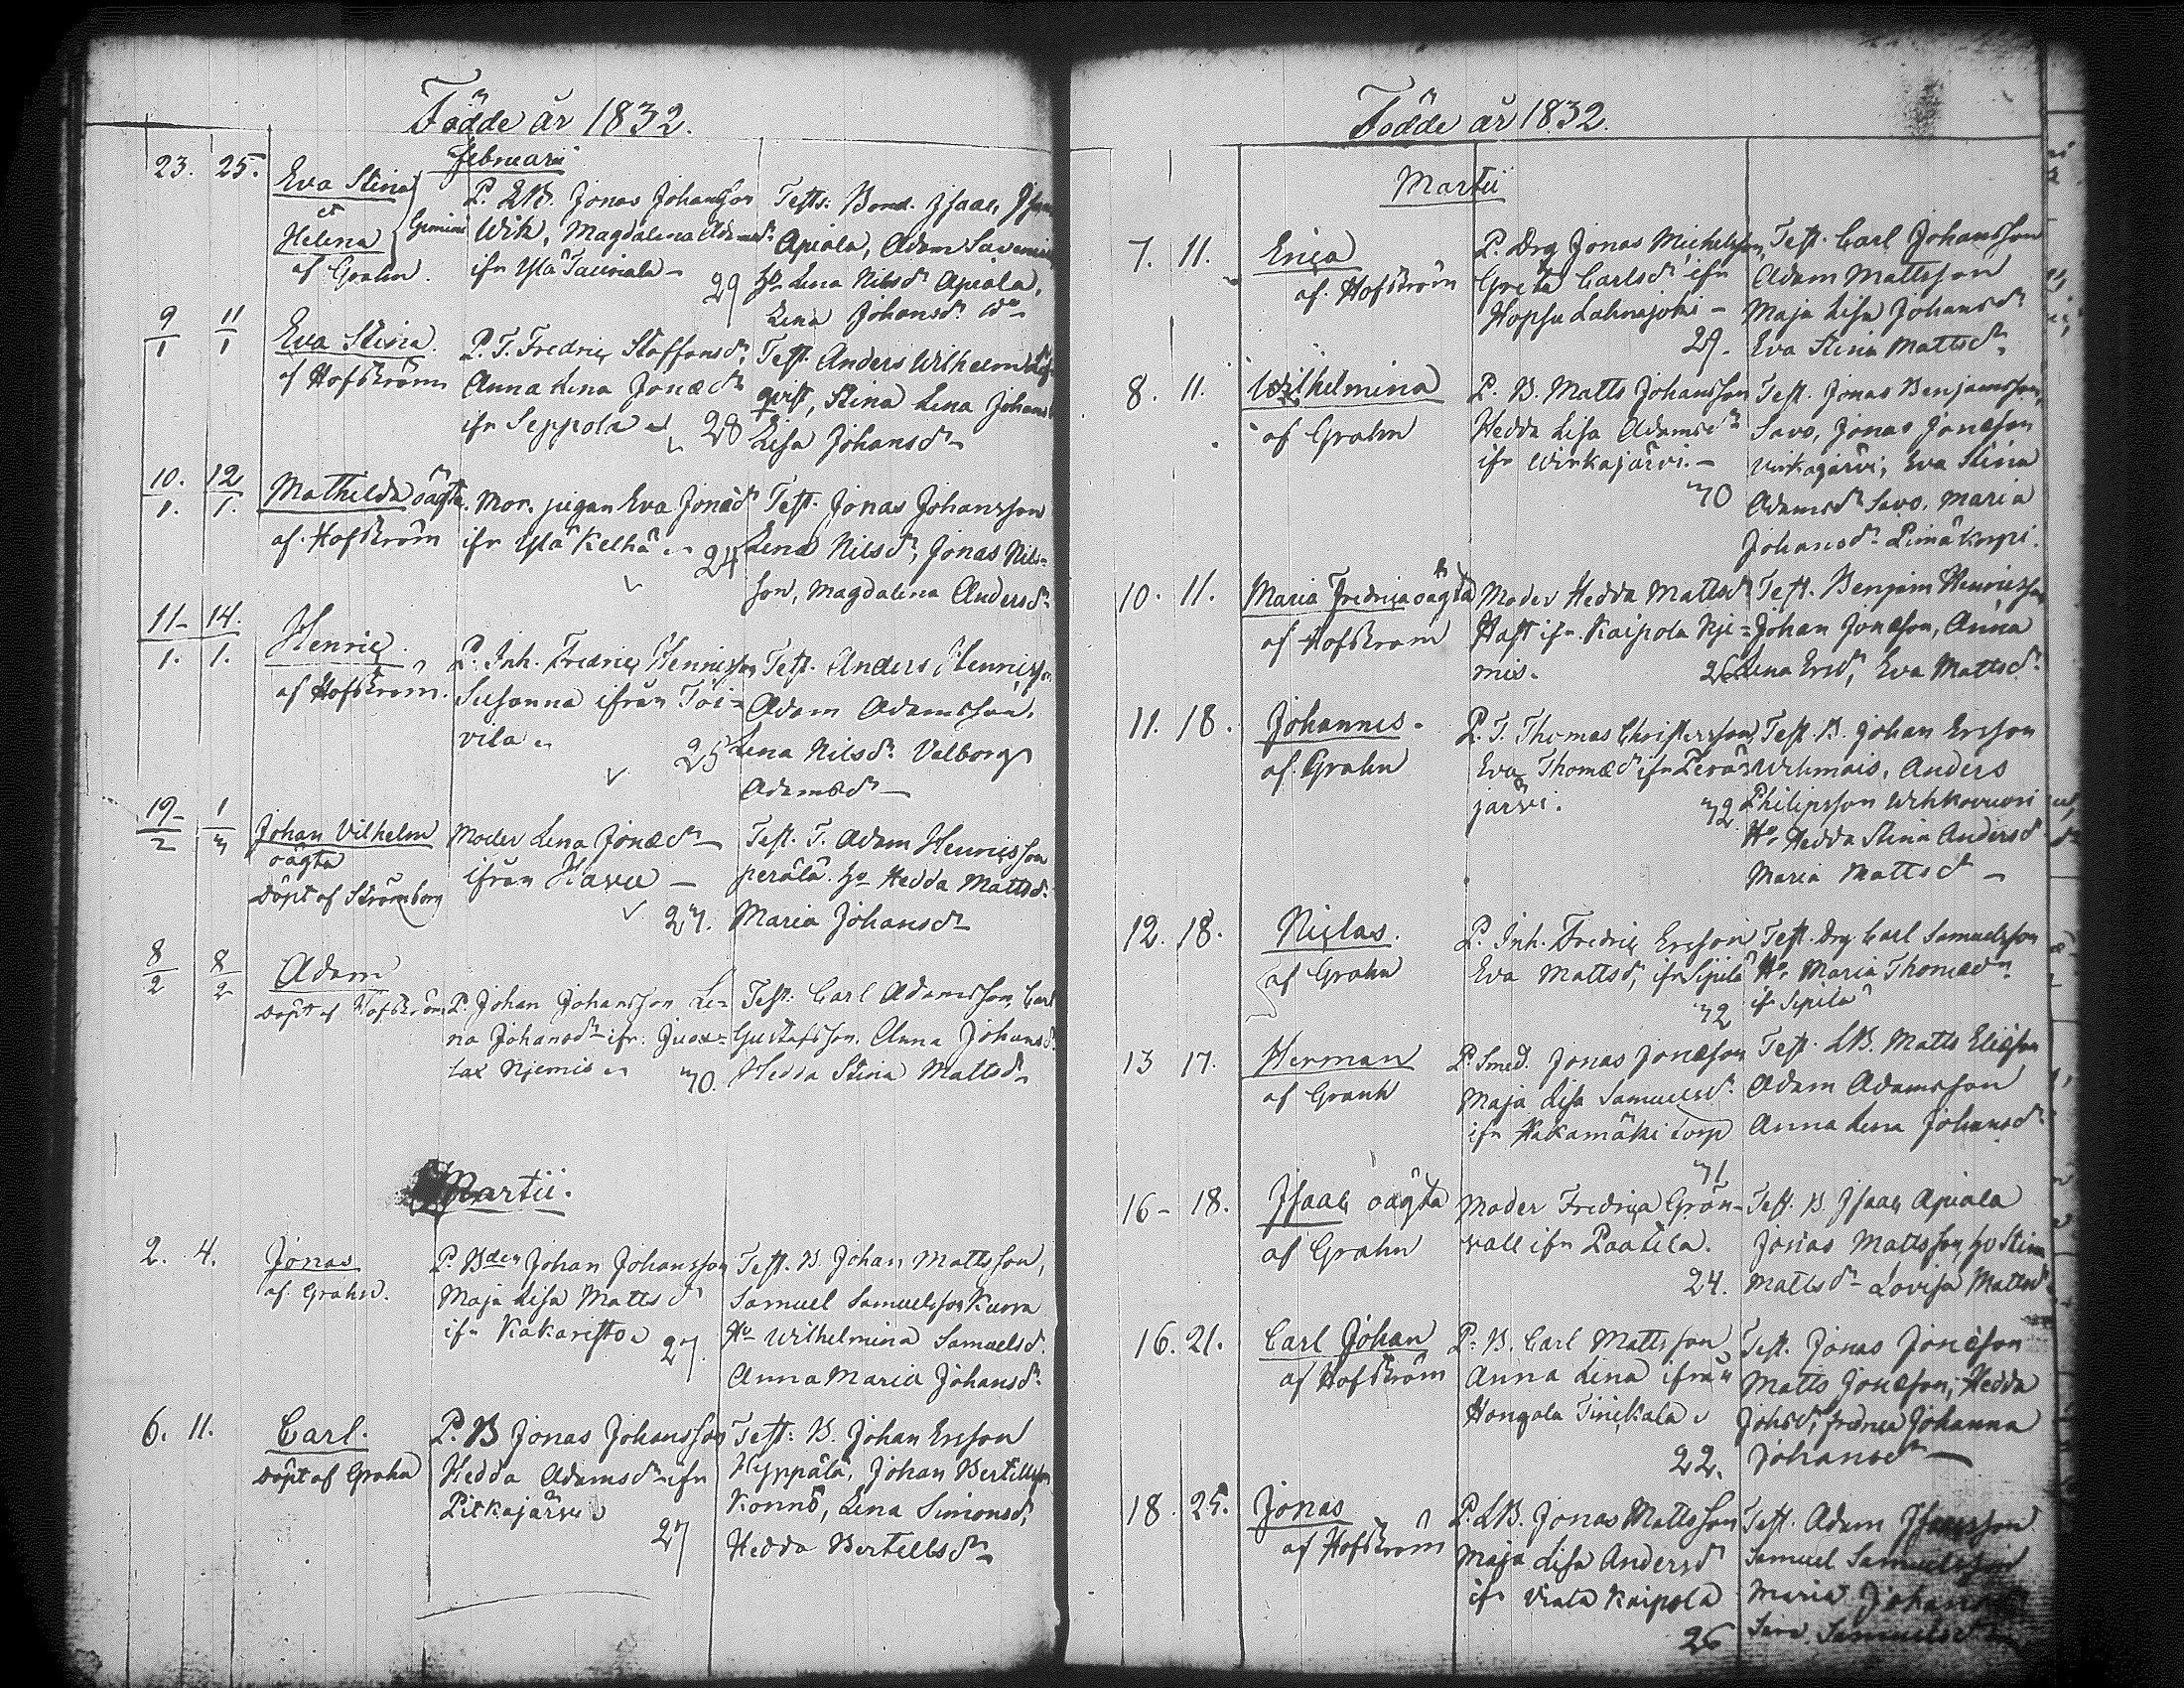 Födde år 1832.
Februarii
23. 25. Eva Stina
et
Helena
Gemini
af Grahn.
P. LB. Jonas Johansson
Wik, Magdalena Adamsdr
ifr Ylä Tauriala
29
Test: Bond. Isaac
Apiala, Adam
ho Lena Nilsdr Apiala,
Lena Johansdr do
9/1 11/1 Eva Stina.
af Hofström
P. T. Fredric Staffansdr,
Anna Lena Jonædr
ifr Seppola
28
Test. Anders Wilhelm
qvist, Stina Lena Johans
Lisa Johansdr
10./1. 12/1. Mathilda oägta.
af Hofström
Mor. pigan Eva Jonædr
ifr Ylä Kelhä
24
Test. Jonas Johansson
Lena Nilsdr, Jonas Nils-
son, Magdalena Andersdr
11/1. 14./1. Henric.
af Hofström.
P. Inh. Fredric Henricsson
Susanna ifrån Toi-
vila
25
Test. Anders Henricsson
Adam Adamsson,
Lena Nilsdr Valborg
Adamsdr
19/2 1/3 Johan Vilhelm
oägta
döpt af Strömborg
Moder Lena Jonædr
ifrån Havu
27.
Test. T. Adam Henricsson
perälä. ho Hedda Mattsdr
Maria Johansdr
8/2 8/2 Adam
döpt af Hofström
P. Johan Johansson Le-
na Johansdr ifr.
lax Njemis
30.
Test: Carl Adamsson, Carl
Gustafsson. Anna Johansdr
Hedda Stina Mattsdr
Martii.
2. 4. Jonas
af Grahn.
P. Bden Johan Johansson
Maja Lisa Mattsdr
ifr Kakaristo
27.
Test. B. Johan Mattsson,
Samuel Samuelsson Kurra
Ho Wilhelmina Samuelsd.
Anna Maria Johansdr
6. 11. Carl.
döpt af Grahn
P. B Jonas Johansson
Hedda Adamsdr ifr
Pitkajärvi
27
Test: B. Johan Ersson
Hyppälä, Johan Bertillsson
Konnö, Lena Simonsd,
Hedda Bertellsdr
Födde år 1832.
Martii
7. 11. Erica
af. Hofström
P. Drg Jonas Michelsson,
Greta Carlsdr, ifr
Hopsu Lahnajoki
29.
Test. Carl Johansson
Adam Mattsson
Maja Lisa Johansdr
Eva Stina Mattsdr
8. 11. Wilhelmina
af Grahn
P. B. Matts Johansson
Hedda Lisa Adamsdr
ifr Wirkajärvi.
30
Test. Jonas Benjamsson,
Savo, Jonas Jonæson
Virkajärvi, Eva Stina
Adamsdr Savo. Maria
Johansdr Pimäkorpi.
10. 11. Maria Fredrica oägta
af Hofström
Moder Hedda Mattsdr
Hast ifr. Kaipola Nje-
mis.
Test. Benjam Henricsson
Johan Jonæson, Anna
Lena Ersd, Eva Mattsdr
11. 18. Johannes.
af Grahn
P. T. Thomas Christersson,
Eva Thomædr ifr Perä-
järvi.
32.
Test. B. Johan Ersson
Wehmais, Anders
Philipsson Wihkovuori
Ho Hedda Stina Andersd
Maria Mattsd
12. 18. Niclas.
af Grahn
P. Inh. Fredric Ersson
Eva Mattsd, ifr Sipilä
32
Test. Drg. Carl Samuelsson
Ho. Maria Thomædr
ifr Sipilä
13 17. Herman
af Granh
P. Smed. Jonas Jonæson
Maja Lisa Samuelsd.
ifr Hakamäki torp
31
Test. LB. Matts Eliæson
Adam Adamsson
Anna Lena Johansdr
16 18. Isaac oägta
af Grahn
Moder Fredrica Grön-
vall ifr Paatela.
24.
Test. B. Isaac Apiala
Jonas Mattsson, ho Stina
Mattsdr Lovisa Mattsdr
16. 21. Carl Johan
af Hofström
P. B. Carl Mattsson
Anna Lena ifrån
Hongola Tinikala
22.
Test. Jonas Jonæson
Matts Jonæson, Hedda
Johsdr, fredrica Johanna
Johansdr
18. 25. Jonas
af Hofström
P. LB. Jonas Mattsson
Maja Lisa Andersdr
ifr Kaipola
26
Test. Adam Isaacsson
Samuel Samuelsson
Maria Johansdr
Samuelsdr